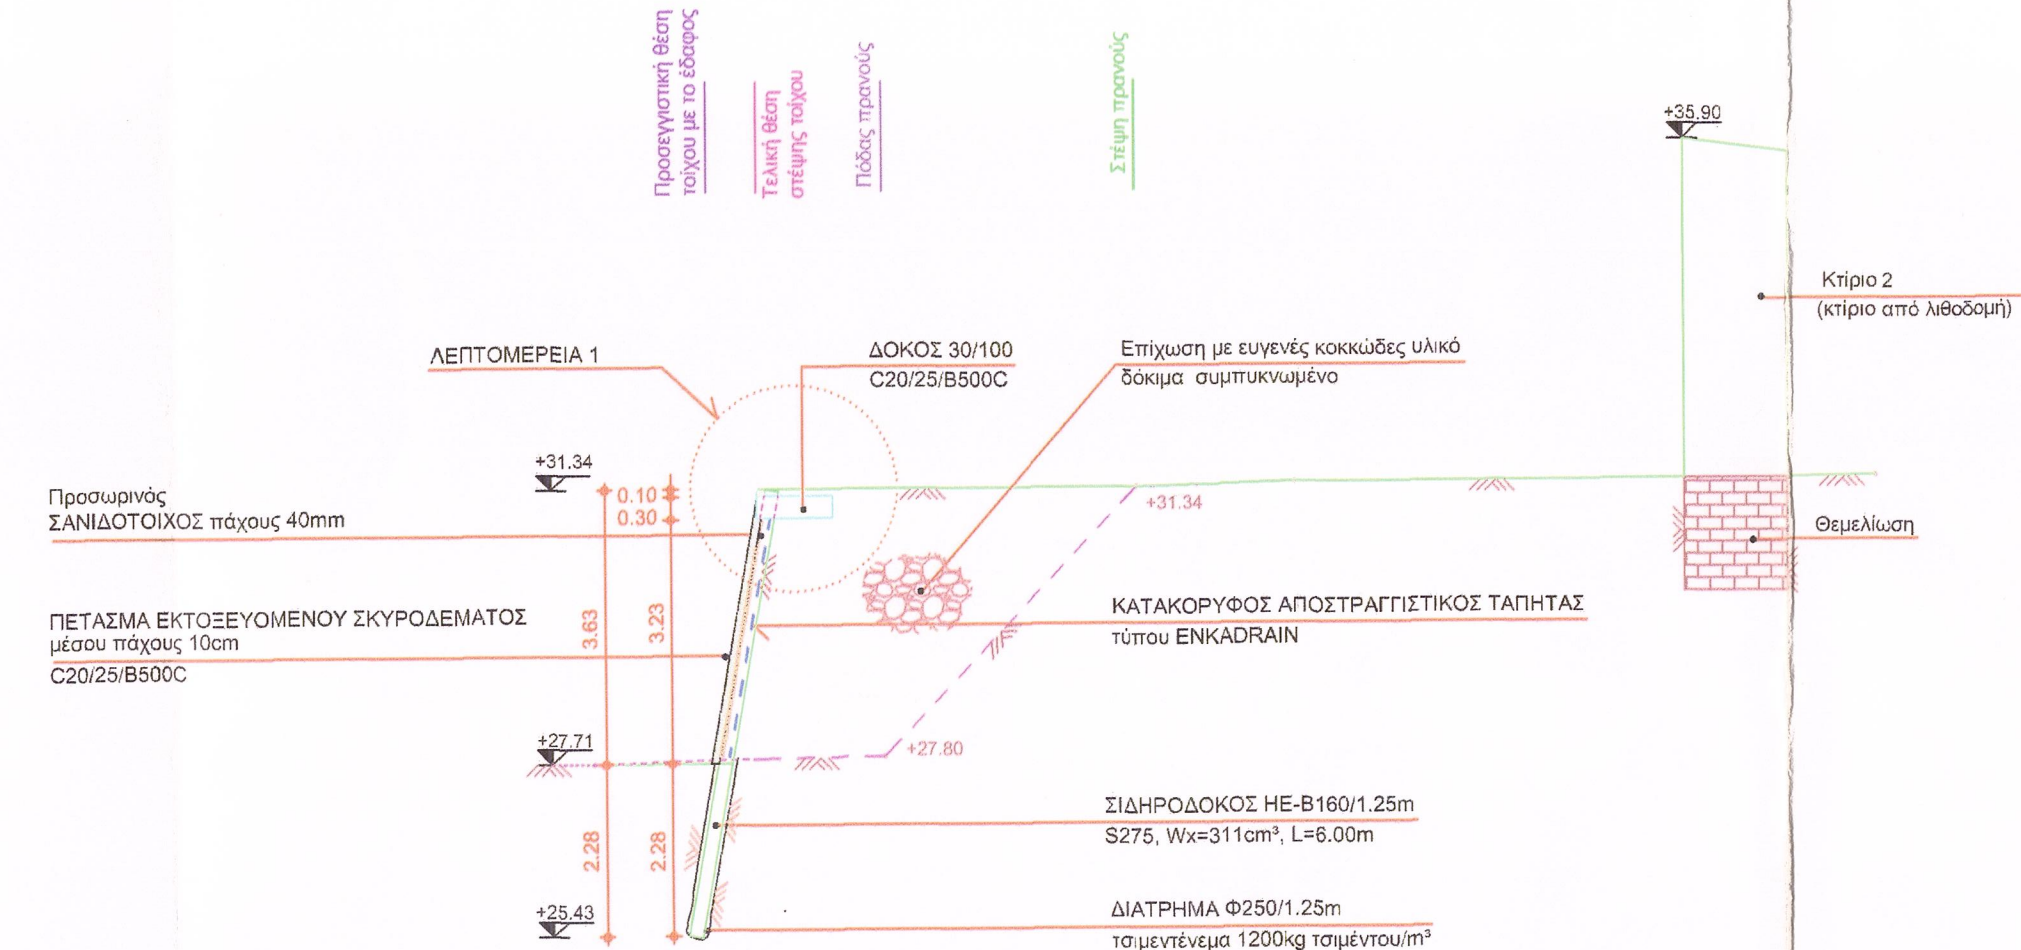 Προσεγγιστική θέση
τοίχου με το έδαφος
Τελική θέση
στέψης τοίχου
Πόδας πρανούς
Στέψη πρανούς
+35.90
Κτίριο 2
(κτίριο από λιθοδομή)
ΛΕΠΤΟΜΕΡΕΙΑ 1
ΔΟΚΟΣ 30/100
C20/25/B500C
Επίχωση με ευγενές κοκκώδες υλικό
δόκιμα συμπυκνωμένο
+31.34
0.10
0.30
+31.34
Προσωρινός
ΣΑΝΙΔΟΤΟΙΧΟΣ πάχους 40mm
Θεμελίωση
ΠΕΤΑΣΜΑ ΕΚΤΟΞΕΥΟΜΕΝΟΥ ΣΚΥΡΟΔΕΜΑΤΟΣ
μέσου πάχους 10cm
C20/25/B500C
3.63
3.23
ΚΑΤΑΚΟΡΥΦΟΣ ΑΠΟΣΤΡΑΓΓΙΣΤΙΚΟΣ ΤΑΠΗΤΑΣ
τύπου ENKADRAIN
+27.71
+27.80
ΣΙΔΗΡΟΔΟΚΟΣ HE-B160/1.25m
S275, Wx=311cm³, L=6.00m
2.28
2.28
+25.43
ΔΙΑΤΡΗΜΑ Φ250/1.25m
τσιμεντένεμα 1200kg τσιμέντου/m³